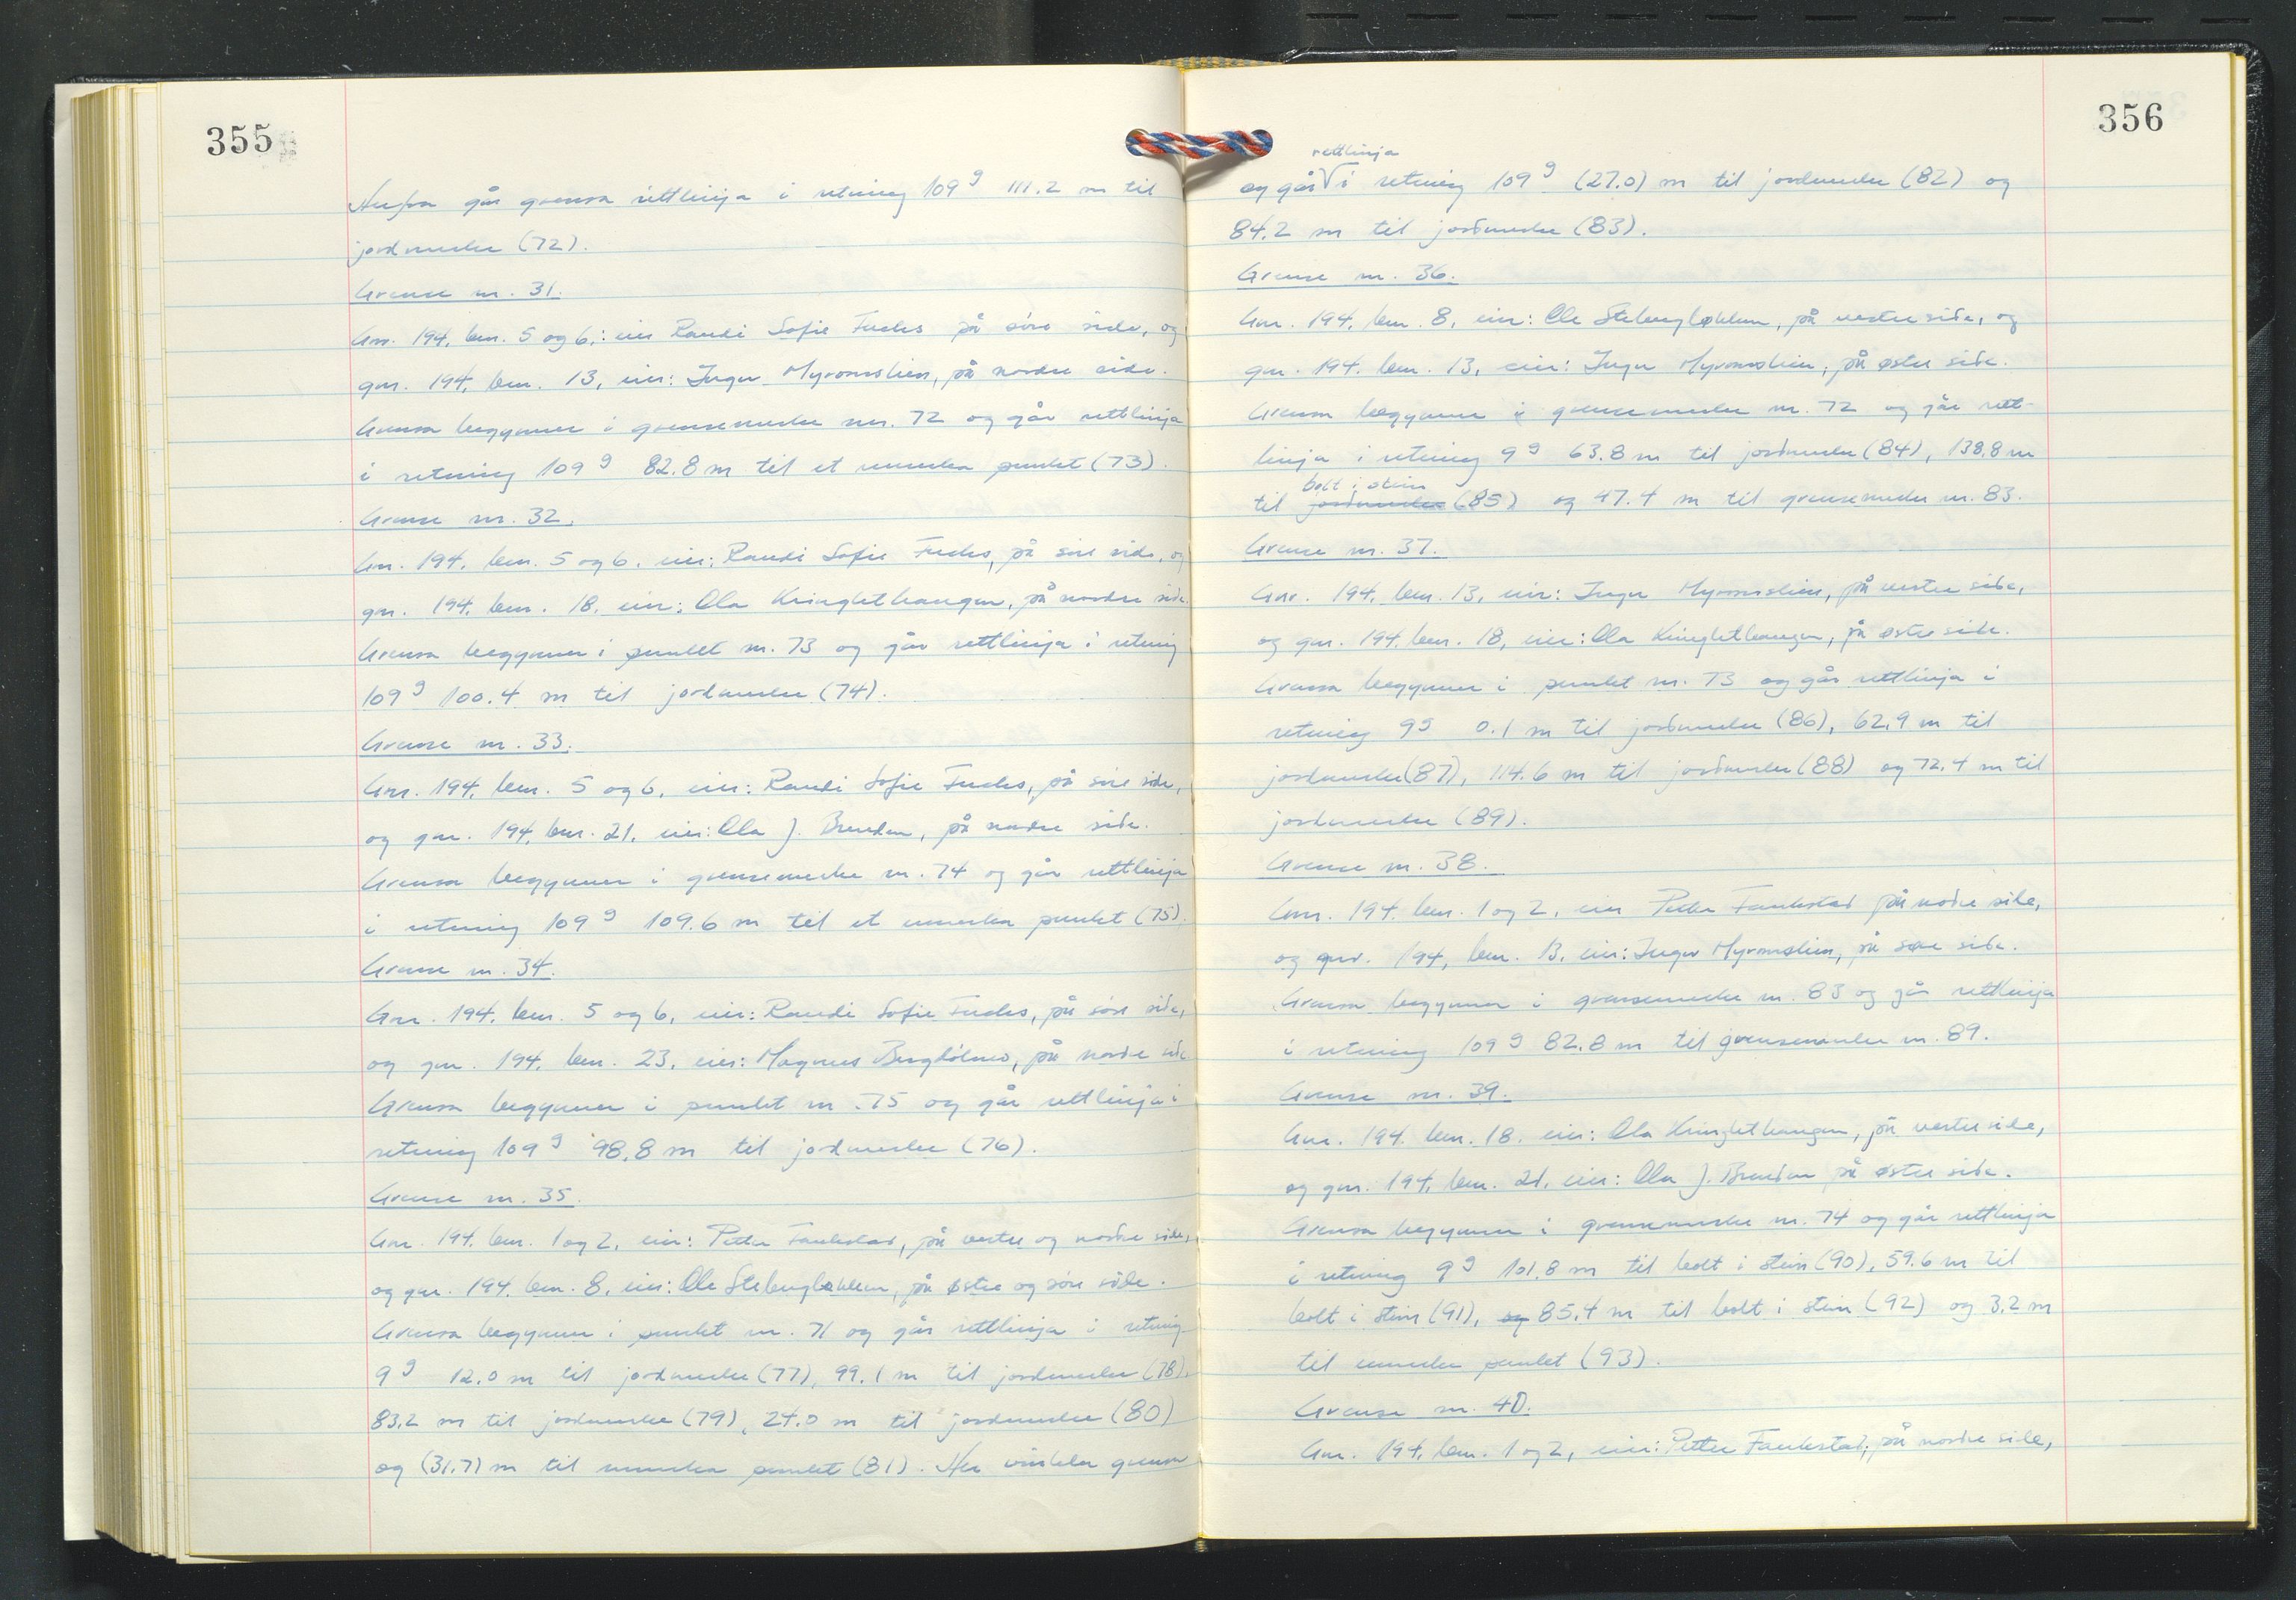 355
Herfra går grensa rettlinja i retning 109 g 111.2 m til
jordmerke (72).
Grense nr. 31.
Gnr. 194, bnr. 5 og 6,: eier Randi Sofie Fuchs på søre side, og
gnr. 194, bnr. 13, eier: Inger Myromslien, på nordre side.
Grensa begynner i grensemerke nr. 72 og går rettlinja
i retning 109 g 82.8 m til et umerka punkt (73).
Grense nr. 32.
Gnr. 194, bnr. 5 og 6, eier: Randi Sofie Fuchs, på søre side, og
gnr. 194, bnr. 18, eier: Ola Kringlethaugen, på nordre side.
Grensa begynner i punkt nr. 73 og går rettlinja i retning
109 g 100.4 m til jordmerke (74).
Grense nr. 33.
Gnr. 194, bnr. 5 og 6, eier: Randi Sofie Fuchs, på søre side,
og gnr. 194, bnr. 21, eier: Ola J. Brendan, på nordre side.
Grensa begynner i grensemerke nr. 74 og går rettlinja
i retning 109 g 109.6 m til et umerka punkt (75).
Grense nr. 34.
Gnr. 194, bnr. 5 og 6, eier: Randi Sofie Fuchs, på søre side,
og gnr. 194, bnr. 23, eier: Magnus, på nordre side
Grensa begynner i punkt nr. 75 og går rettlinja i
retning 109 g 98,8 m til jordmerke (76).
Grense nr. 35.
Gnr. 194, bnr. 1 og 2, eier: Petter Faukstad, på vestre og nordre side,
og gnr. 194, bnr. 8, eier: Ole Stebergløkken, på østre og søre side.
Grensa begynner i punkt nr. 71 og går rettlinja i retning
9 g 12.0 m til jordmerke (77), 99.1 m til jordmerke (78),
83,2 m til jordmerke (79), 24.0 m til jordmerke (80)
og (31.7) m til umerka punkt (81). Her vinkler grensa
356
rettlinja
og går √ i retning 109 g (27.0) m til jordmerke (82) og
84.2 m til jordmerke (83).
Grense nr. 36.
Gnr. 194, bnr. 8, eier: Ole Stebergløkken, på vestre side, og
gnr. 194, bnr. 13, eier: Inger Myromslien, på østre side.
Grensa begynner i grensemerke nr. 72 og går rett-
linja i retning 9 g 63.8 m til jordmerke (84), 138,8 m
bolt i stein
til jordmerke (85) og 47.4 m til grensemerke nr. 83.
Grense nr. 37.
Gnr. 194, bnr. 13, eier: Inger Myromslien, på vestre side,
og gnr. 194, bnr. 18, eier: Ola Kringlethaugen, på østre side.
Grensa begynner i punkt nr. 73 og går rettlinja i
retning 9 g 0.1 m til jordmerke (86), 62,9 m til
jordmerke (87), 114.6 m til jordmerke (88) og 72,4 m til
jordmerke (89).
Grense nr. 38.
Gnr. 194, bnr. 1 og 2, eier Petter Faukstad på nordre side,
og gnr. 194, bnr. 13, eier: Inger Myromslien, på søre side.
Grensa begynner i grensemerke nr. 83 og går rettlinja
i retning 109 g 82.8 m til grensemerke nr. 89.
Grense nr. 39.
Gnr. 194, bnr. 18, eier: Ola Kringlethaugen, på vestre side,
og gnr. 194, bnr. 21, eier: Ola J. Brendan på østre side.
Grensa begynner i grensemerke nr. 74 og går rettlinja
i retning 9 g 101,8 m til bolt i stein (90), 59.6 m til
bolt i stein (91), og 85,4 m til bolt i stein (92) og 3,2 m
til umerka punkt (93).
Grense nr. 40.
Gnr. 194, bnr. 1 og 2, eier: Petter Faukstad, på nordre side,